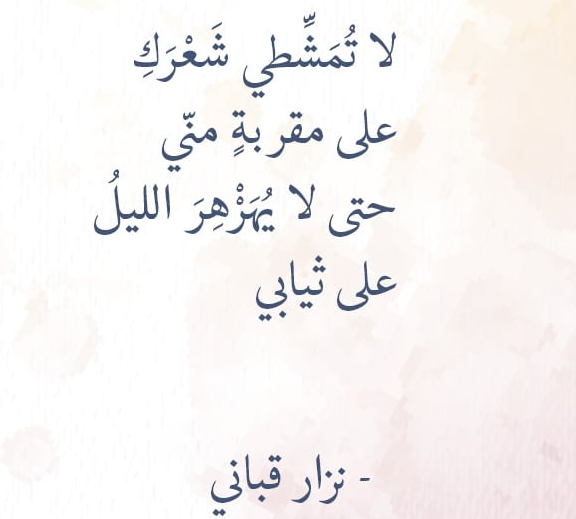 لا تُمَشِّطي شَعْرَكِ
على مقربةٍ منّي
حتى لا يُهَزْهِرَ الليلُ
على ثيابي
- نزار قباني